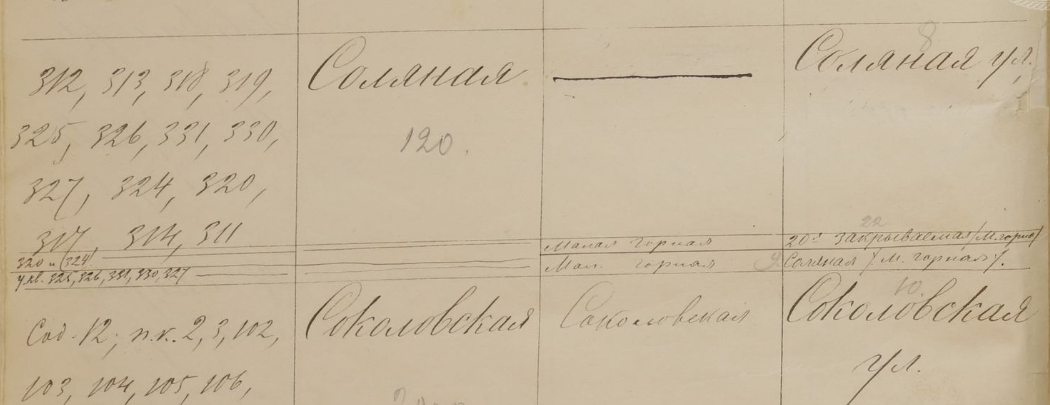 312, 313, 318, 319, Соляная ——— Соляная ул.
8
325, 326, 331, 330, 120.
327, 324, 320,
317, 314, 311
22
320 и (324) Малая горная 20й закрываемая (М. горная)
у кв. 325, 326, 331, 330, 327 Мал. горная Соляная (М. горная).
10
Сад-12; п.к. 2, 3, 102, Соколовская Соколовская Соколовская
103, 104, 105, 106, ул.